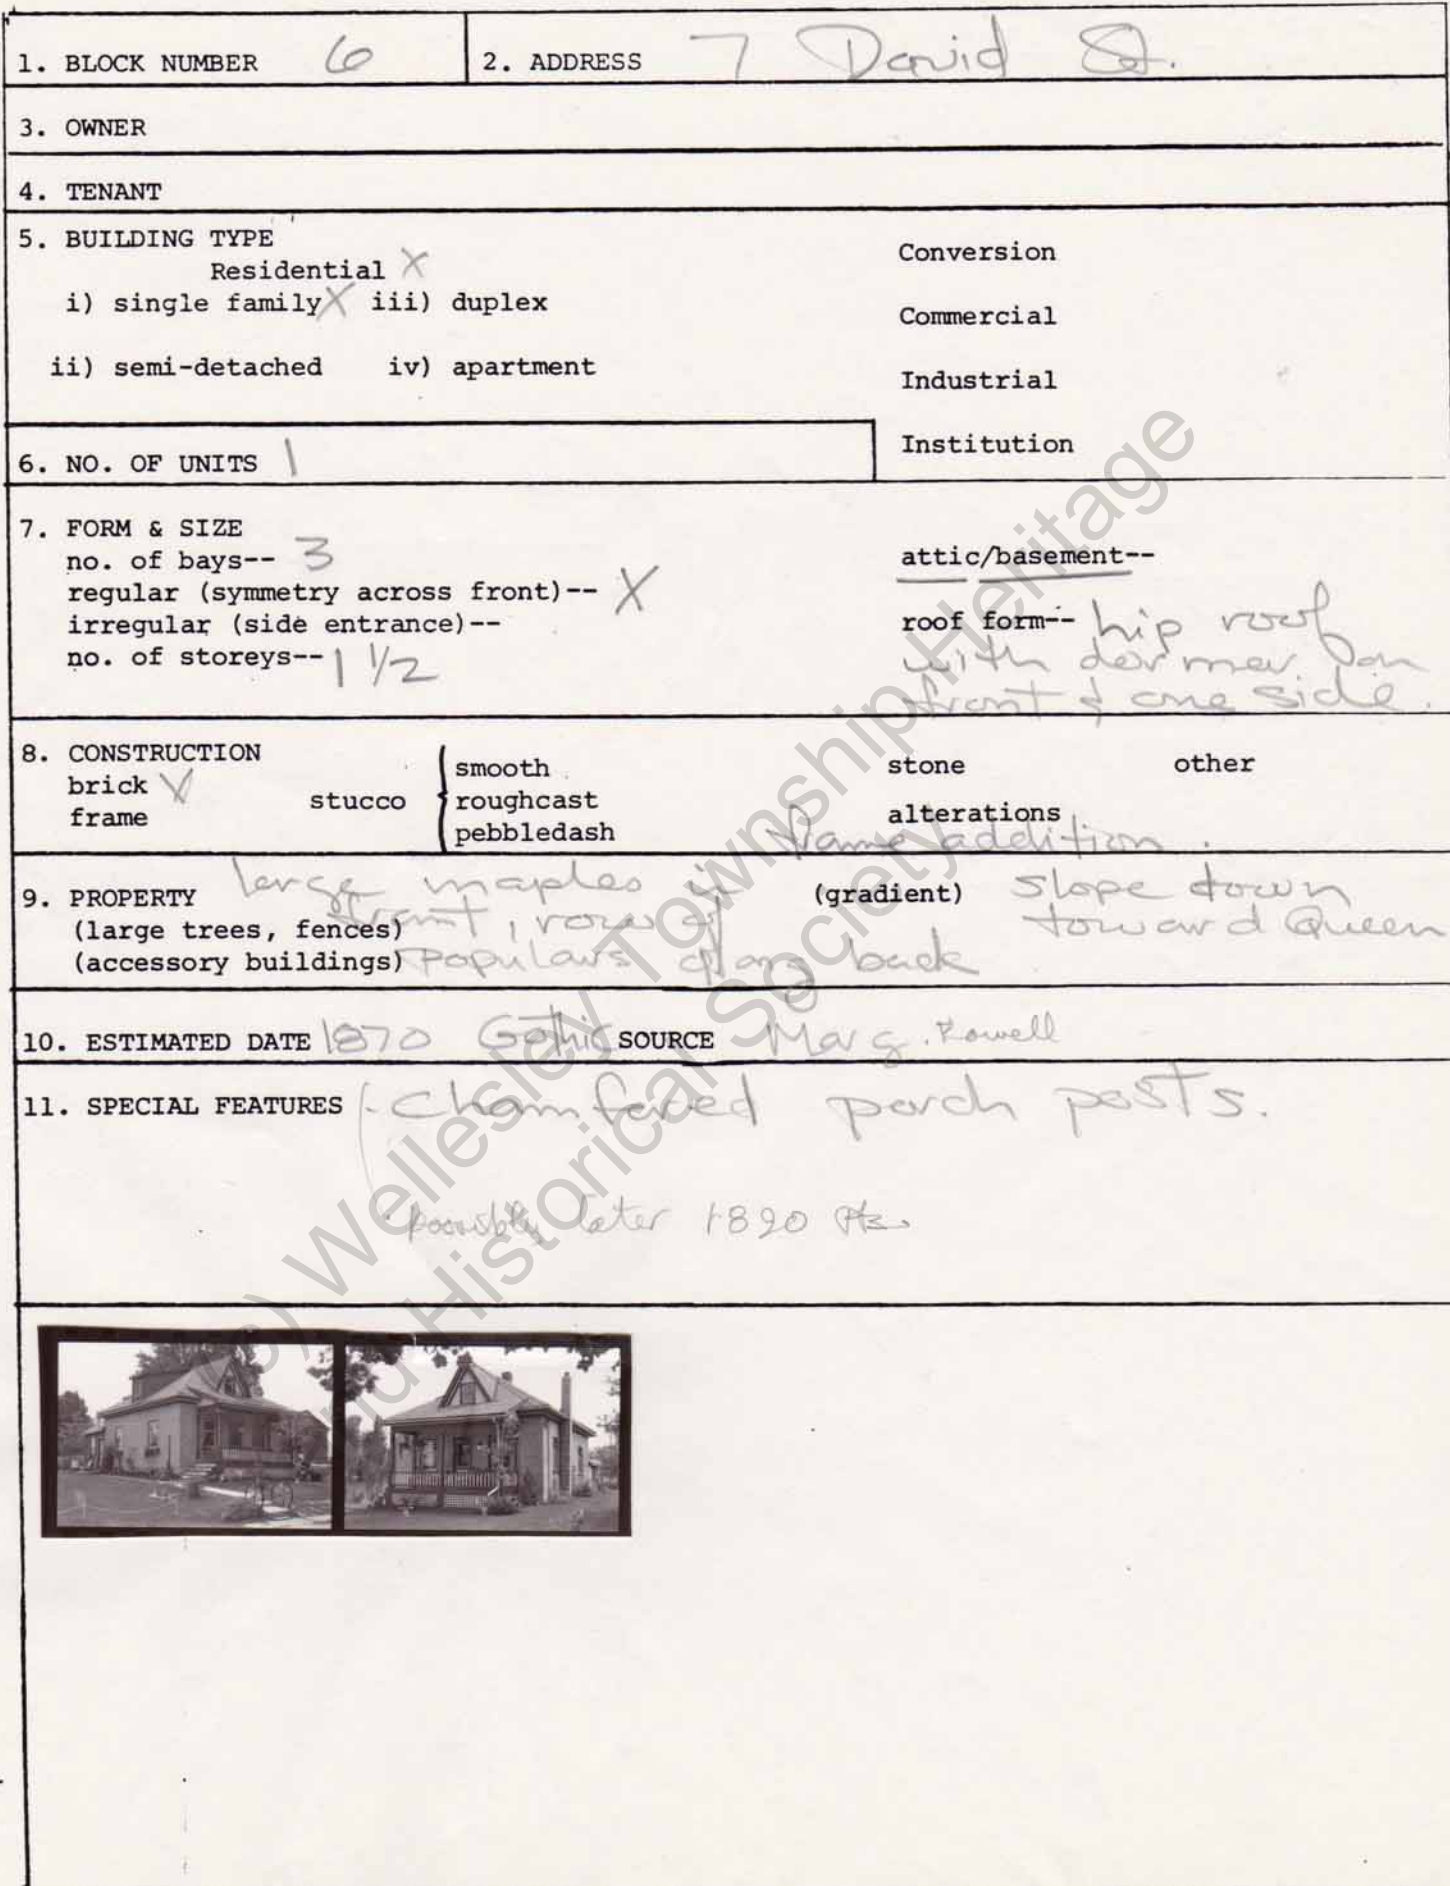 1. BLOCK NUMBER 6 2. ADDRESS 7 David St.
3. OWNER
4. TENANT
5. BUILDING TYPE
Residential X
i) single family X iii) duplex
ii) semi-detached iv) apartment
Conversion
Commercial
Industrial
Institution
6. NO. OF UNITS 1
7. FORM & SIZE
no. of bays-- 3
regular (symmetry across front)-- X
irregular (side entrance)--
no. of storeys-- 1 1/2
attic/basement--
roof form-- hip roof
with dormer on
front & one side.
8. CONSTRUCTION
brick
frame
stucco
smooth
roughcast
pebbledash
stone other
alterations
frame addition.
9. PROPERTY large maples in
(large trees, fences) front, row of
(accessory buildings) Populars along back
(gradient) slope down
toward Queen
10. ESTIMATED DATE 1870 Gothic SOURCE Marg. Rowell
11. SPECIAL FEATURES - Chamfered porch posts.
possibly later 1890
(c) Wellesley Township Heritage
and Historical Society